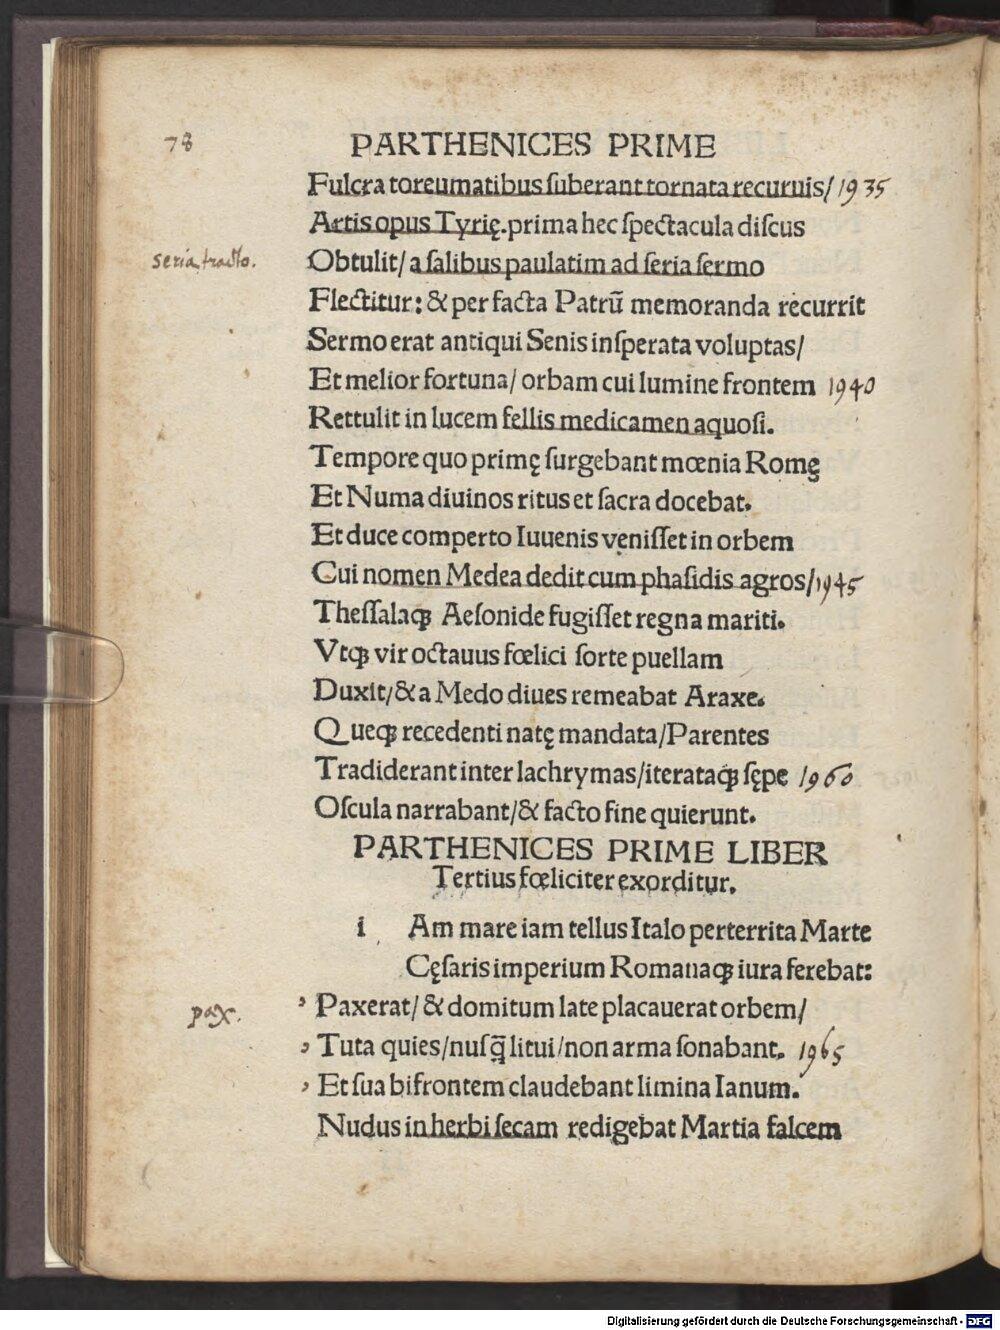 78 PARTHENICES PRIME
Fulcra toreumatibus ſuberant tornata recuruis/ 1935
Artis opus Tyrię. prima hec ſpectacula diſcus
seria tractō.
Obtulit/ a ſalibus paulatim ad ſeria ſermo
Flectitur: & per facta Patrū memoranda recurrit
Sermo erat antiqui Senis inſperata voluptas/
Et melior fortuna/ orbam cui lumine frontem 1940
Rettulit in lucem fellis medicamen aquoſi.
Tempore quo primę ſurgebant mœnia Romę
Et Numa diuinos ritus et ſacra docebat.
Et duce comperto Iuuenis veniſſet in orbem
Cui nomen Medea dedit cum phaſidis agros/ 1945
Theſſalaqꝫ Aeſonide fugiſſet regna mariti.
Vtqꝫ vir octauus fœlici ſorte puellam
Duxit/ & a Medo diues remeabat Araxe.
Queqꝫ recedenti natę mandata/ Parentes
Tradiderant inter lachrymas/ iterataqꝫ ſępe 1960
Oſcula narrabant/ & facto fine quierunt.
PARTHENICES PRIME LIBER
Tertius fœliciter exorditur.
i Am mare iam tellus Italo perterrita Marte
Cęſaris imperium Romanaqꝫ iura ferebat:
pax.
Paxerat/ & domitum late placauerat orbem/
Tuta quies/ nuſq̄ litui/ non arma ſonabant. 1965
Et ſua bifrontem claudebant limina Ianum.
Nudus in herbi ſecam redigebat Martia falcem
Digitalisierung gefördert durch die Deutsche Forschungsgemeinschaft - DFG